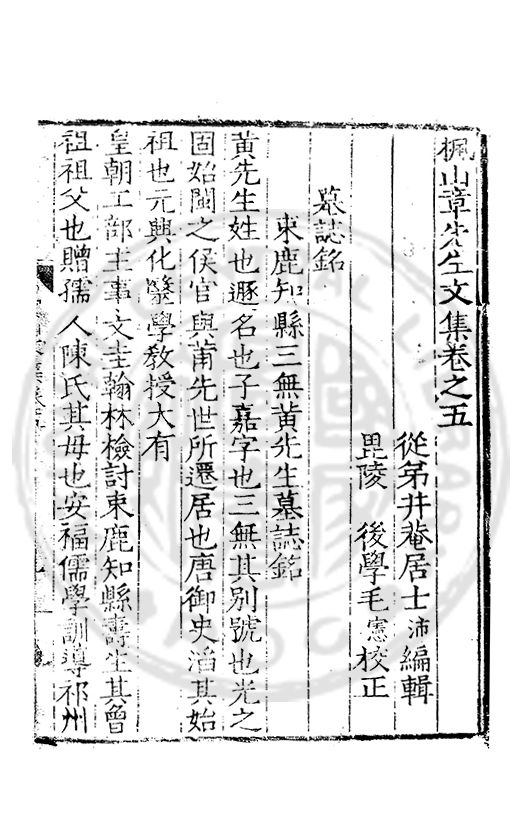 楓山章先生文集卷之五
從弟井菴居士沛編輯
毘陵 後學毛憲校正
墓誌銘
束鹿知縣三無黃先生墓誌銘
黃先生姓也遯名也子嘉字也三無其別號也光之
固始閩之侯官與莆先世所遷居也唐御史滔其始
祖也元興化縣學教授大有
皇朝工部主事文圭翰林檢討束鹿知縣壽生其曾
祖祖父也贈孺人陳氏其母也安福儒學訓導祁州